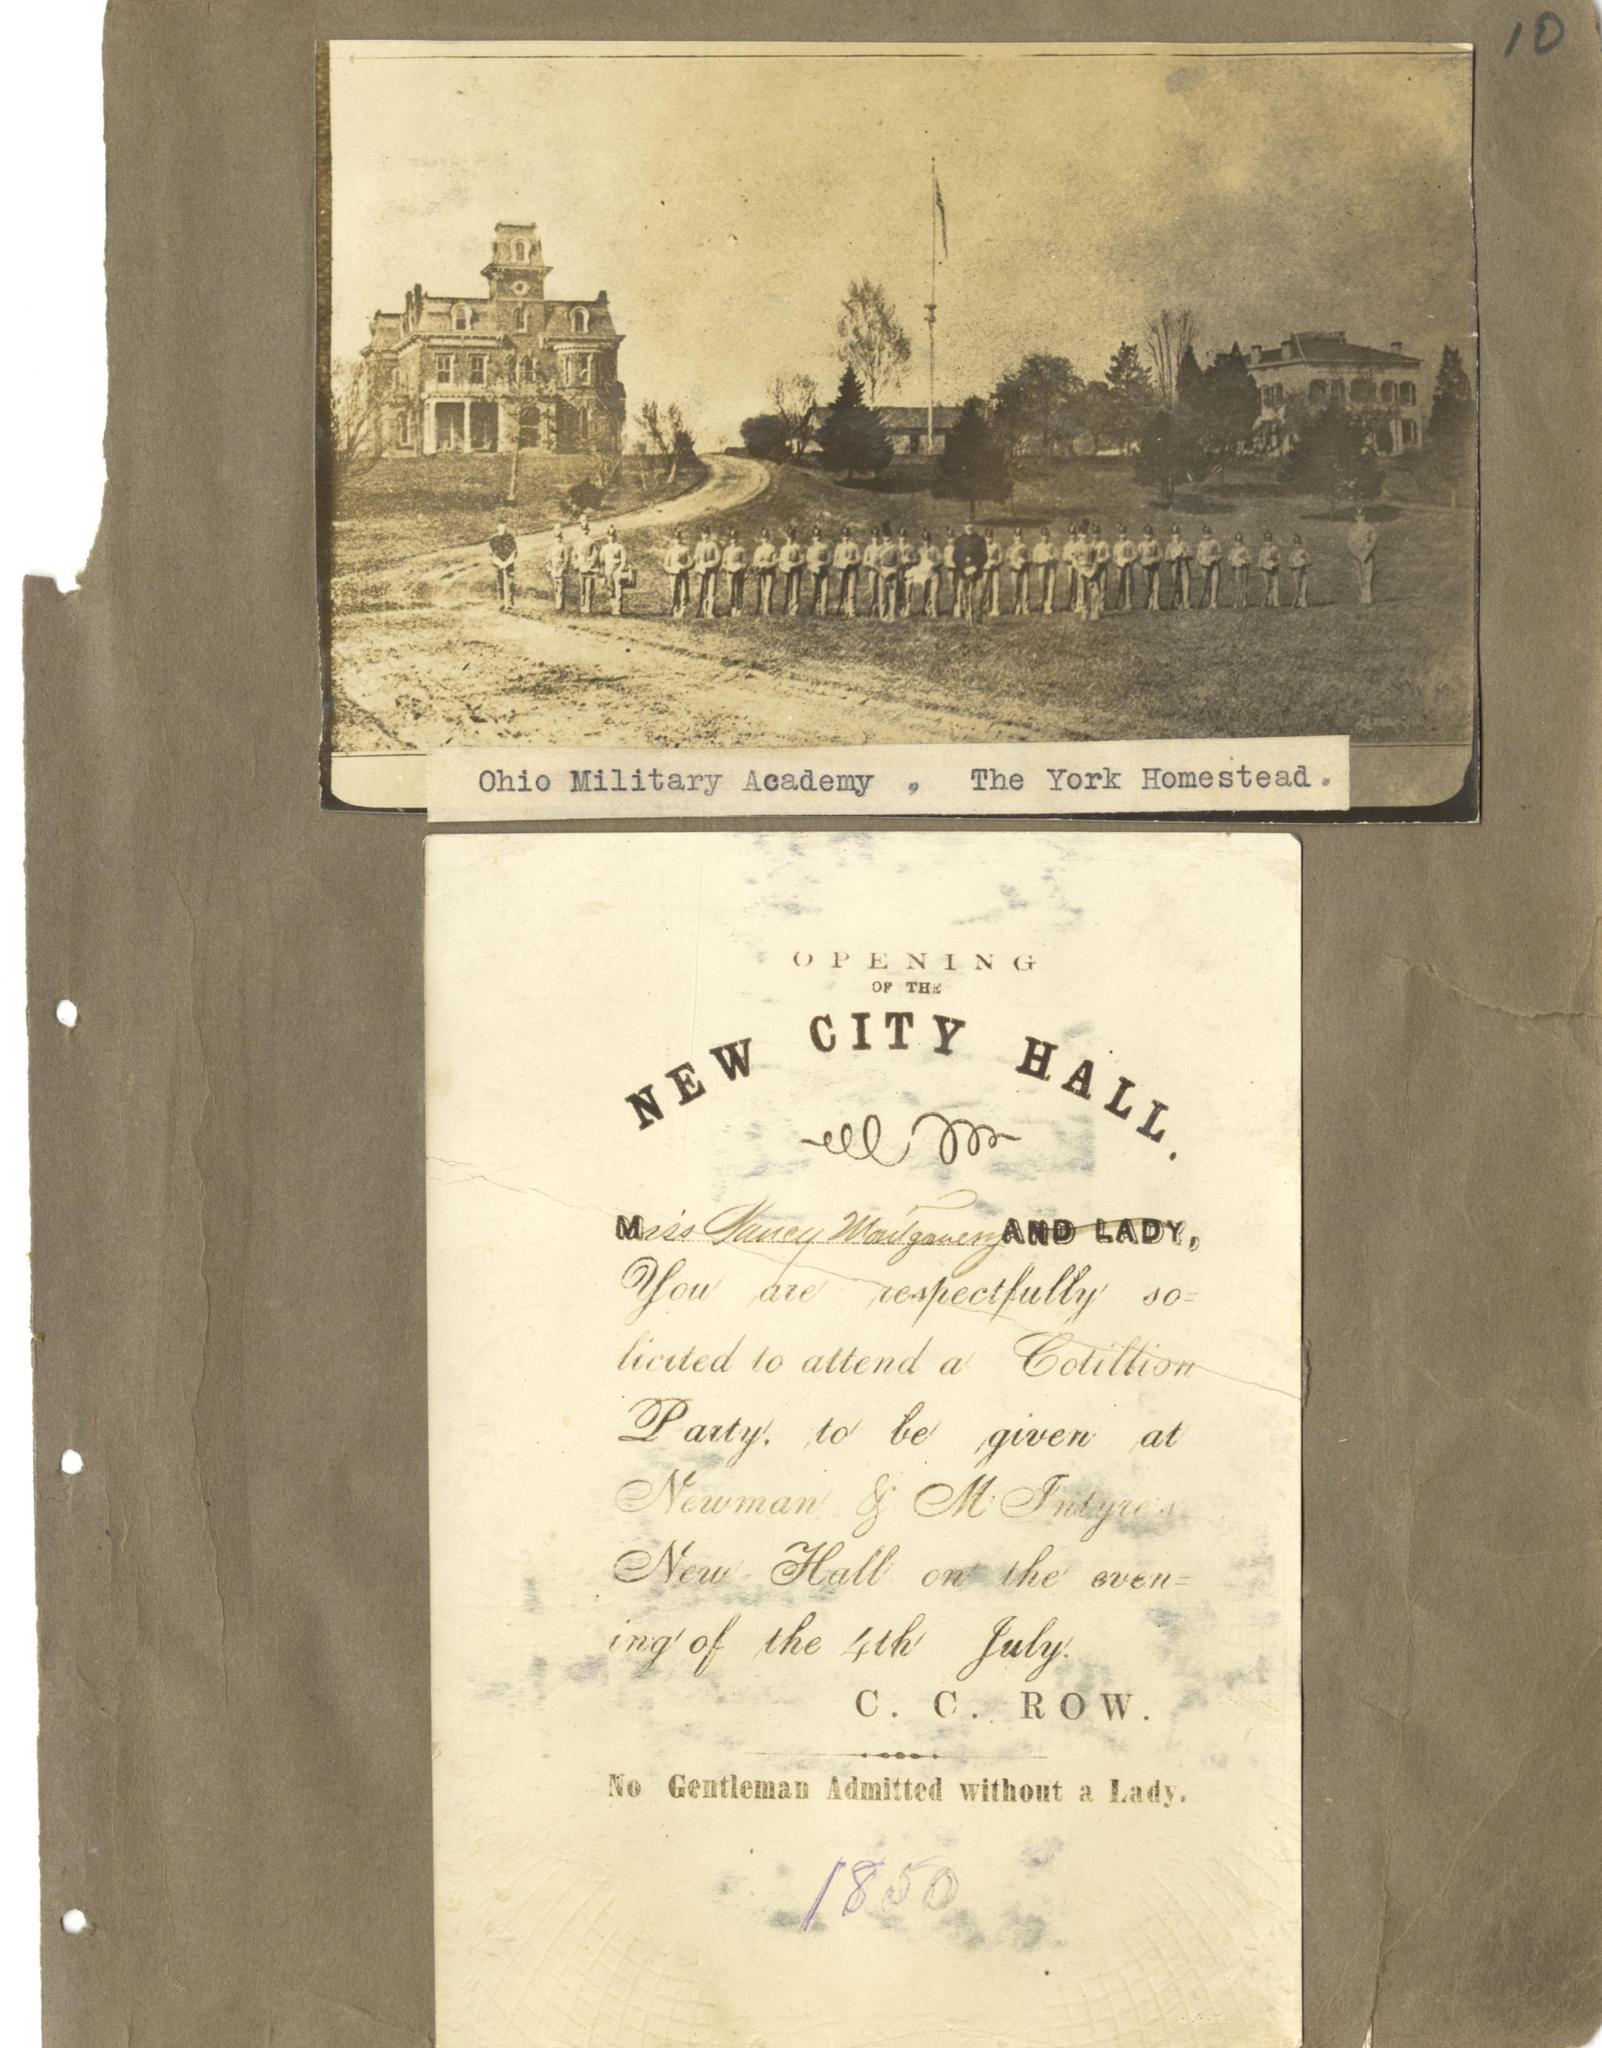 10
Ohio Military Academy , The York Homestead.
OPENING
OF THE
NEW CITY HALL.
Miss Nancy Montgomery AND LADY,
You are respectfully so=
licited to attend a Cotillion
Party, to be given at
Newman & Mc Intyre's
New Hall on the even=
ing of the 4th July.
C. C. ROW.
No Gentleman Admitted without a Lady.
1850